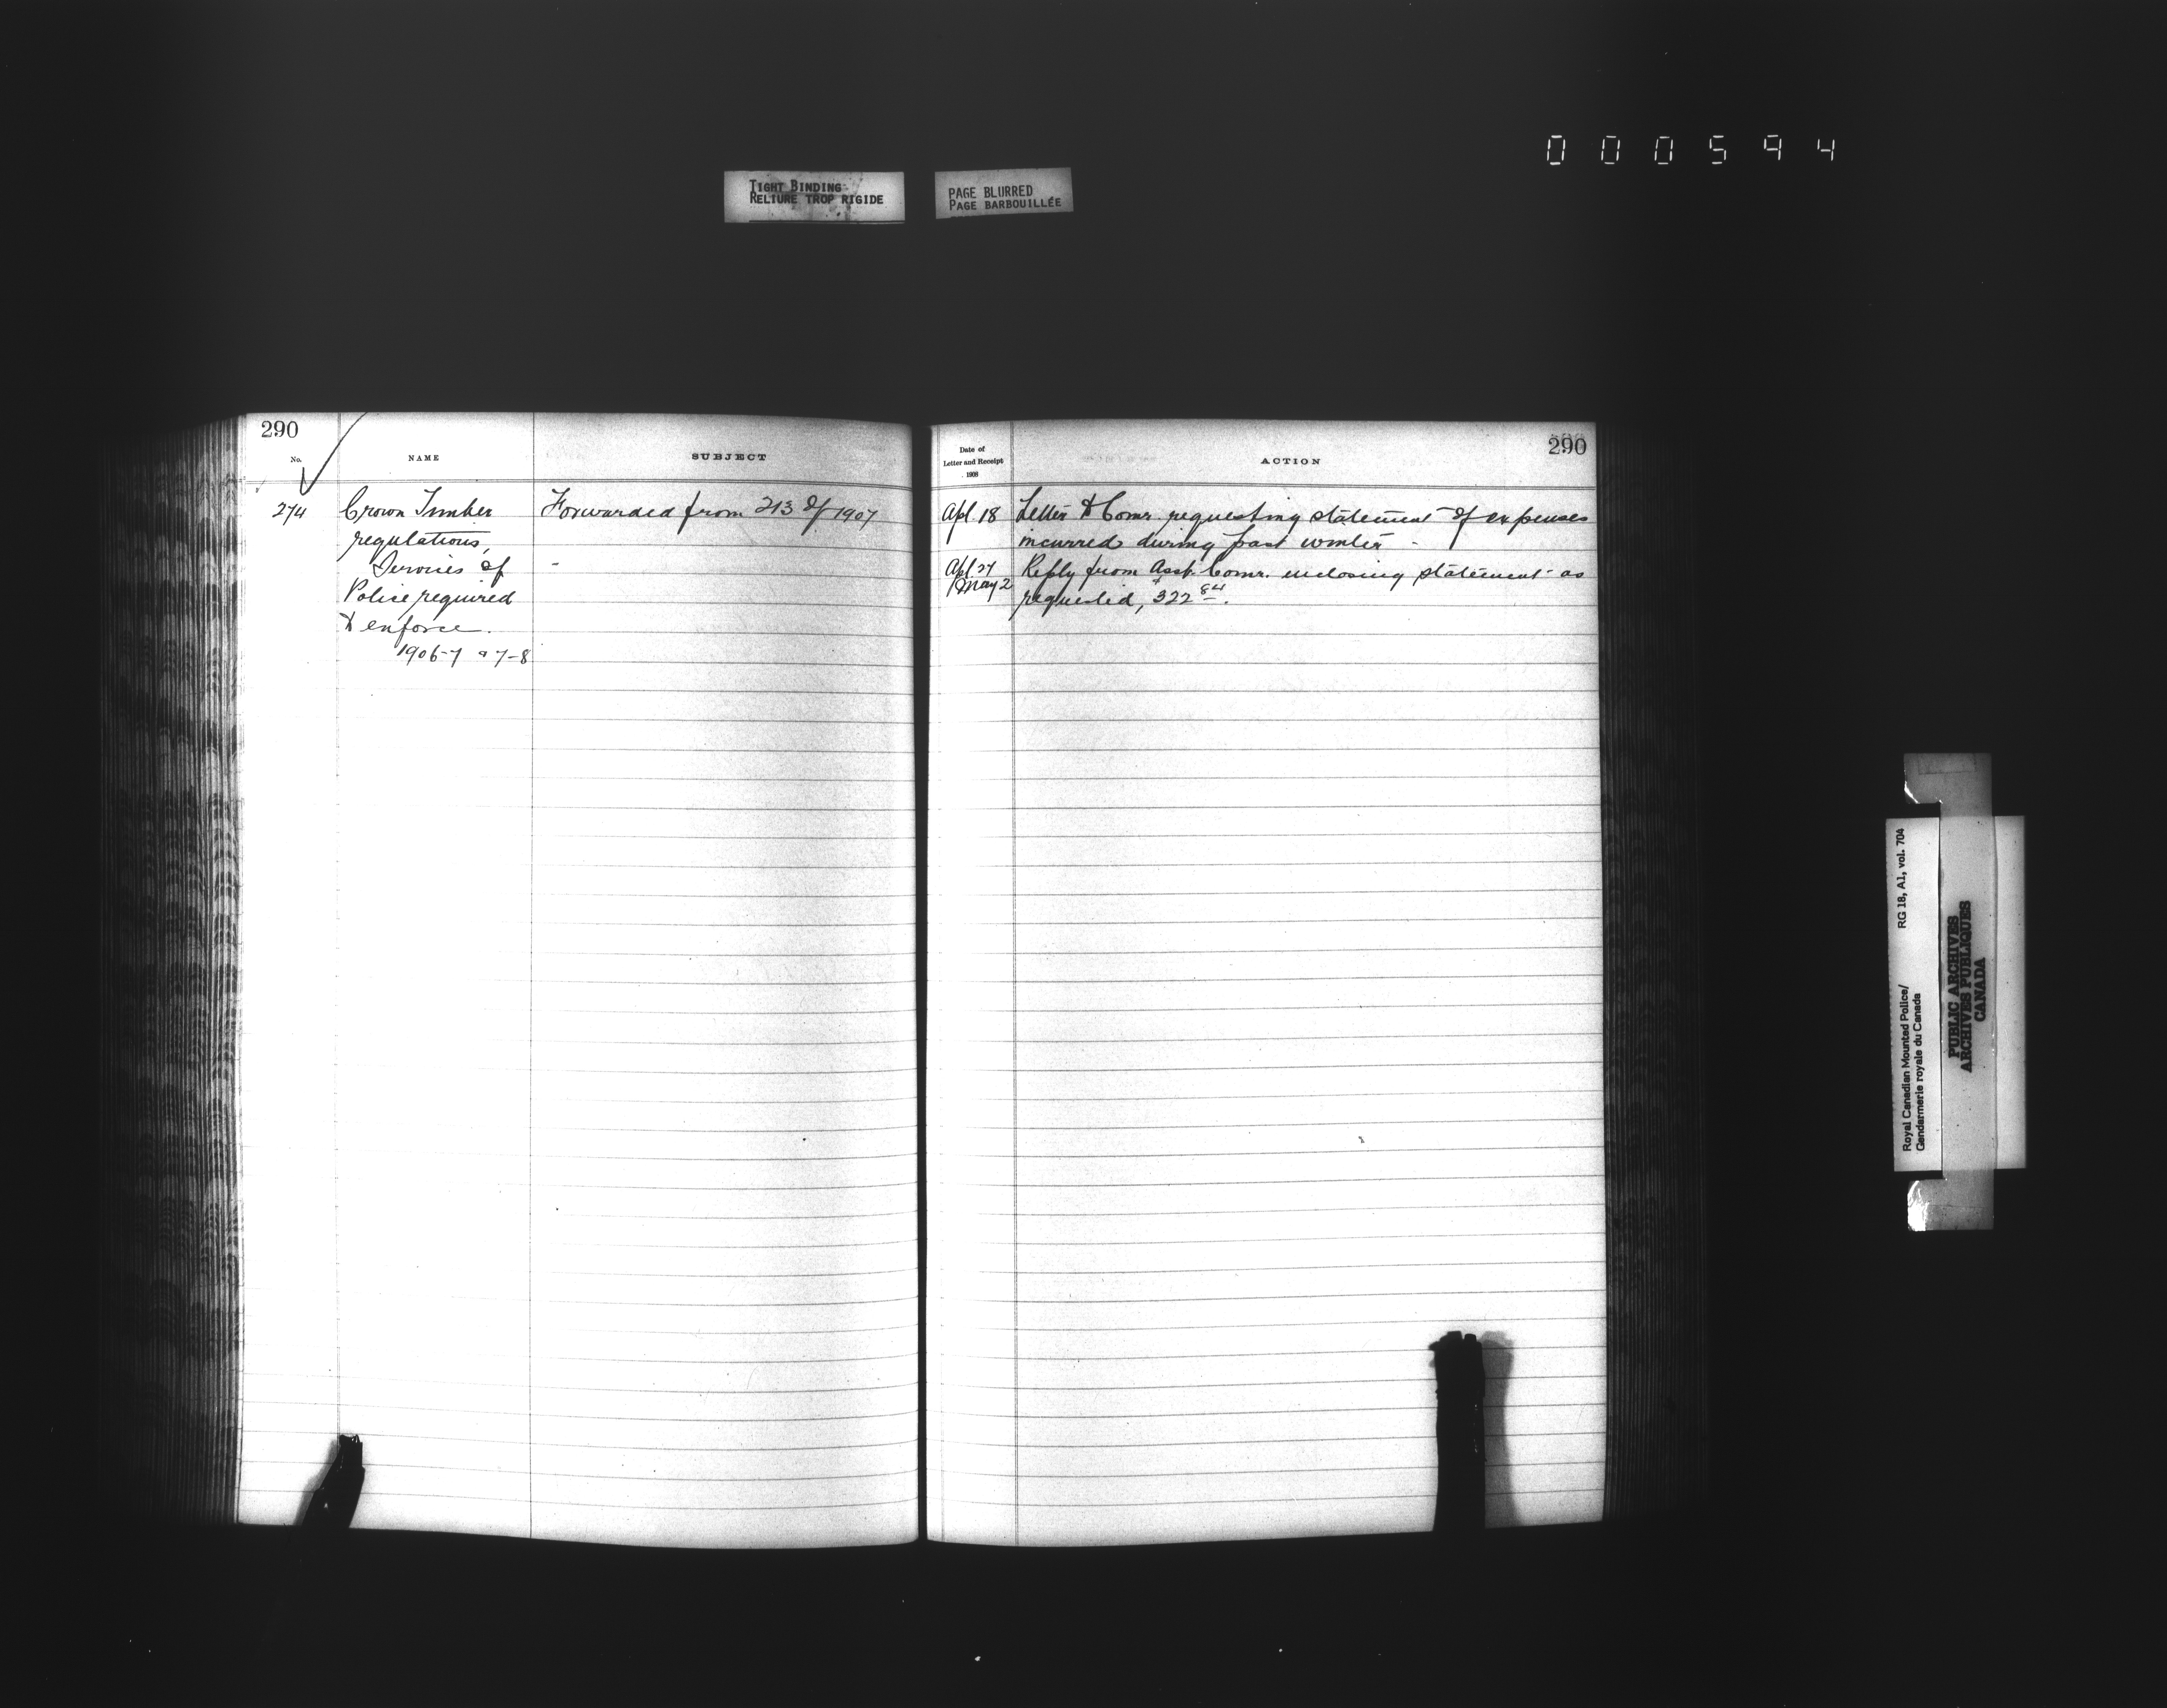 000594
TIGHT BINDING
RELIURE TROP RIGIDE
PAGE BLURRED
PAGE BARBOUILLÉE
290
No.
NAME
SUBJECT
274
Crown Timber
regulations,
Services of
Police required
to enforce.
1906-7 & 7-8
Forwarded from 213 of 1907
290
Date of
Letter and Receipt
1908
ACTION
Apl. 18 Letter to Comr. requesting statement of expenses
incurred during past winter -
Apl. 27 Reply from Asst. Comr. enclosing statement as
May 2 requested, $322 84.
Royal Canadian Mounted Police/ RG 18, A1, vol. 704
Gendarmerie royale du Canada
PUBLIC ARCHIVES
ARCHIVES PUBLIQUES
CANADA